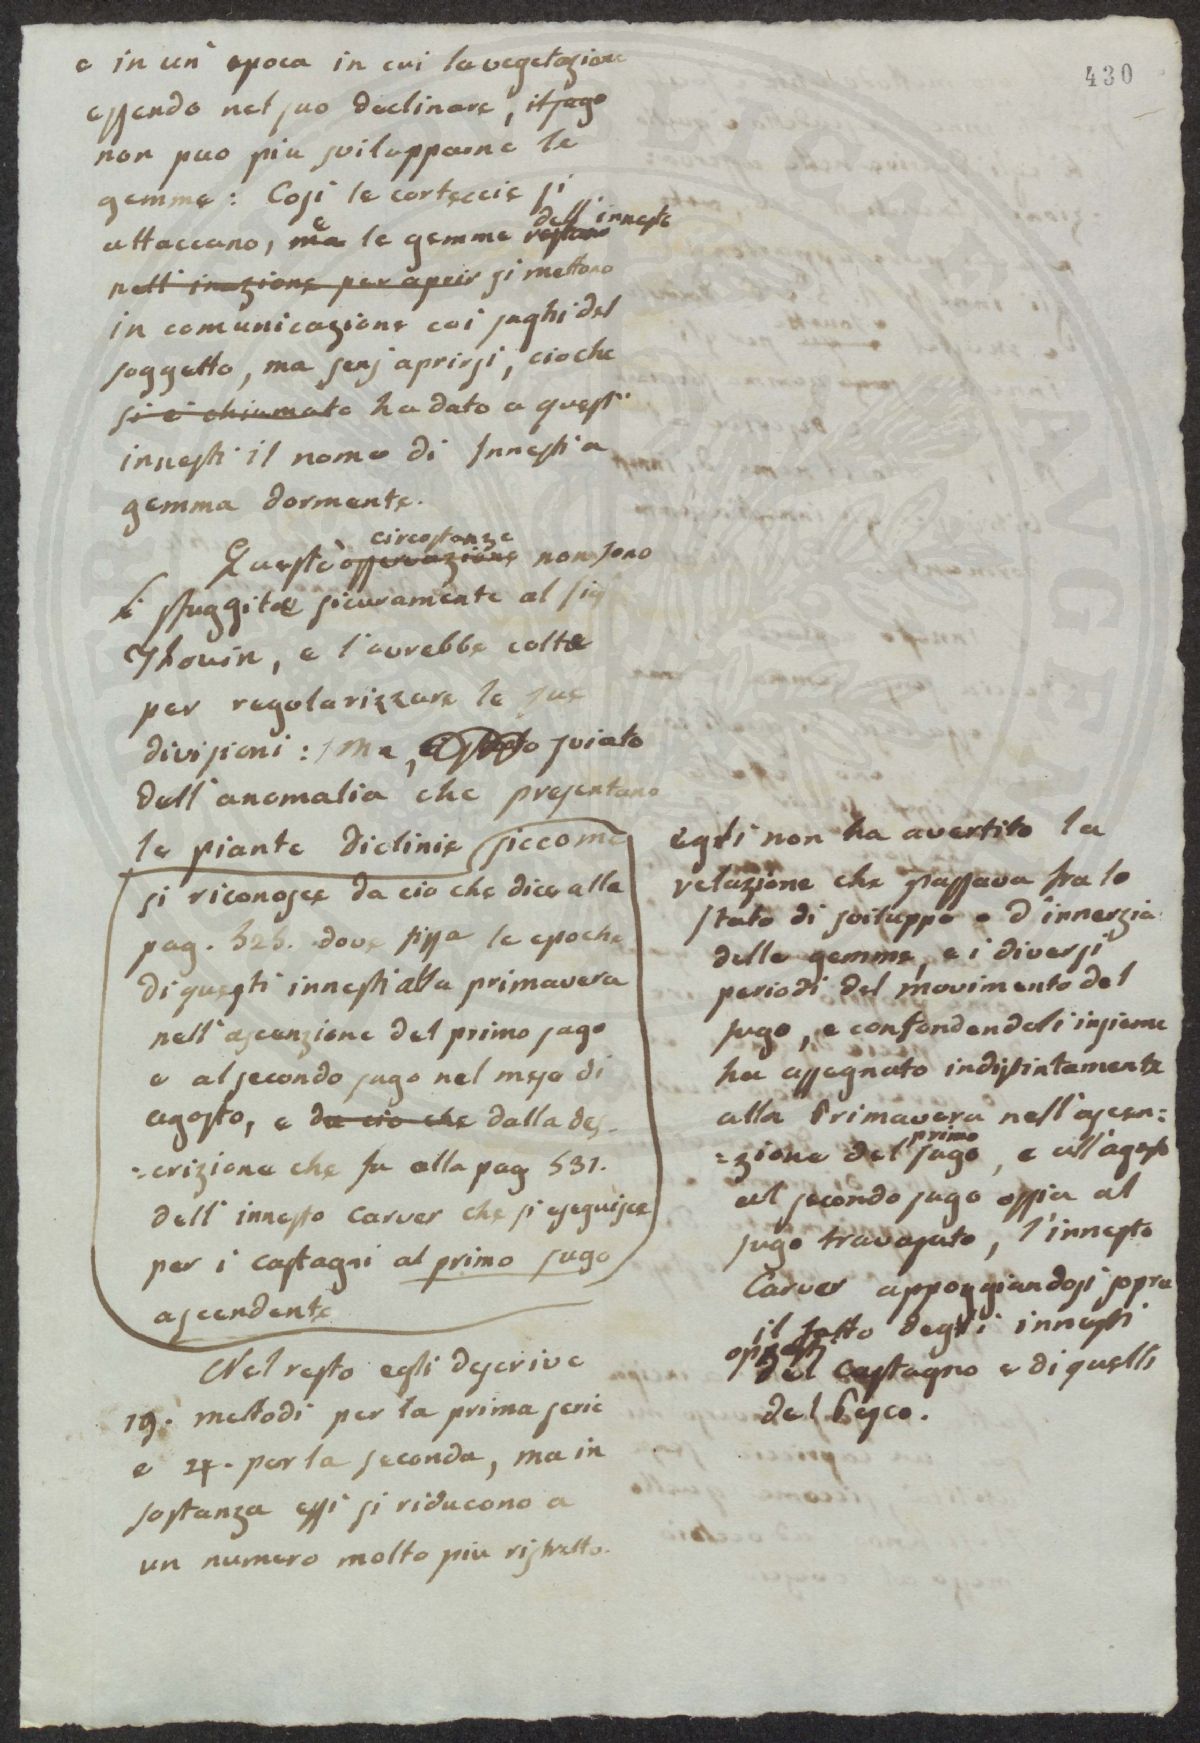 430
e in un' epoca in cui la vegetazione
essendo nel suo declinare, il sugo
non puo piu svilupparne le
gemme: Cosi le corteccie si
attaccano, e le gemme dell'innesto
restano
nell'inazione per aprir si mettono
in comunicazione coi sughi del
soggetto, ma senz'aprirsi, cioche
si è chiamato ha dato a questi
innesti il nome di Innesti a
gemma dormente.
circostanze
Queste osservazione non sono
sfuggite sicuramente al sig
Thouin, e l'avrebbe colte
per regolarizzare le sue
divisioni: Ma, sviato
dall'anomalia che presentano
le piante diclinie siccome
si riconosce da cio che dice alla
pag. 525. dove fissa le epoche
di questi innesti alla primavera
nell'ascenzione del primo sugo
e al secondo sugo nel mese di
agosto, e da cio che dalla des-
=crizione che fa alla pag 531.
dell'innesto Carver che si eseguisce
per i castagni al primo sugo
ascendente
Nel resto egli descrive
19. mettodi per la prima serie
e 24. per la seconda, ma in
sostanza essi si riducono a
un numero molto piu ristretto.
egli non ha avertito la
relazione che passava fra lo
stato di sviluppo o d'innerzia
delle gemme, e i diversi
periodi del movimento del
sugo, e confondendoli insieme
ha assegnato indistintamente
alla Primavera nell'ascen=
primo
=zione del sugo, e all'agosto
al secondo sugo ossia al
sugo travasato, l'innesto
Carver appoggiandosi sopra
il fatto degli innesti
opposti
del Castagno e di quelli
del Pesco.